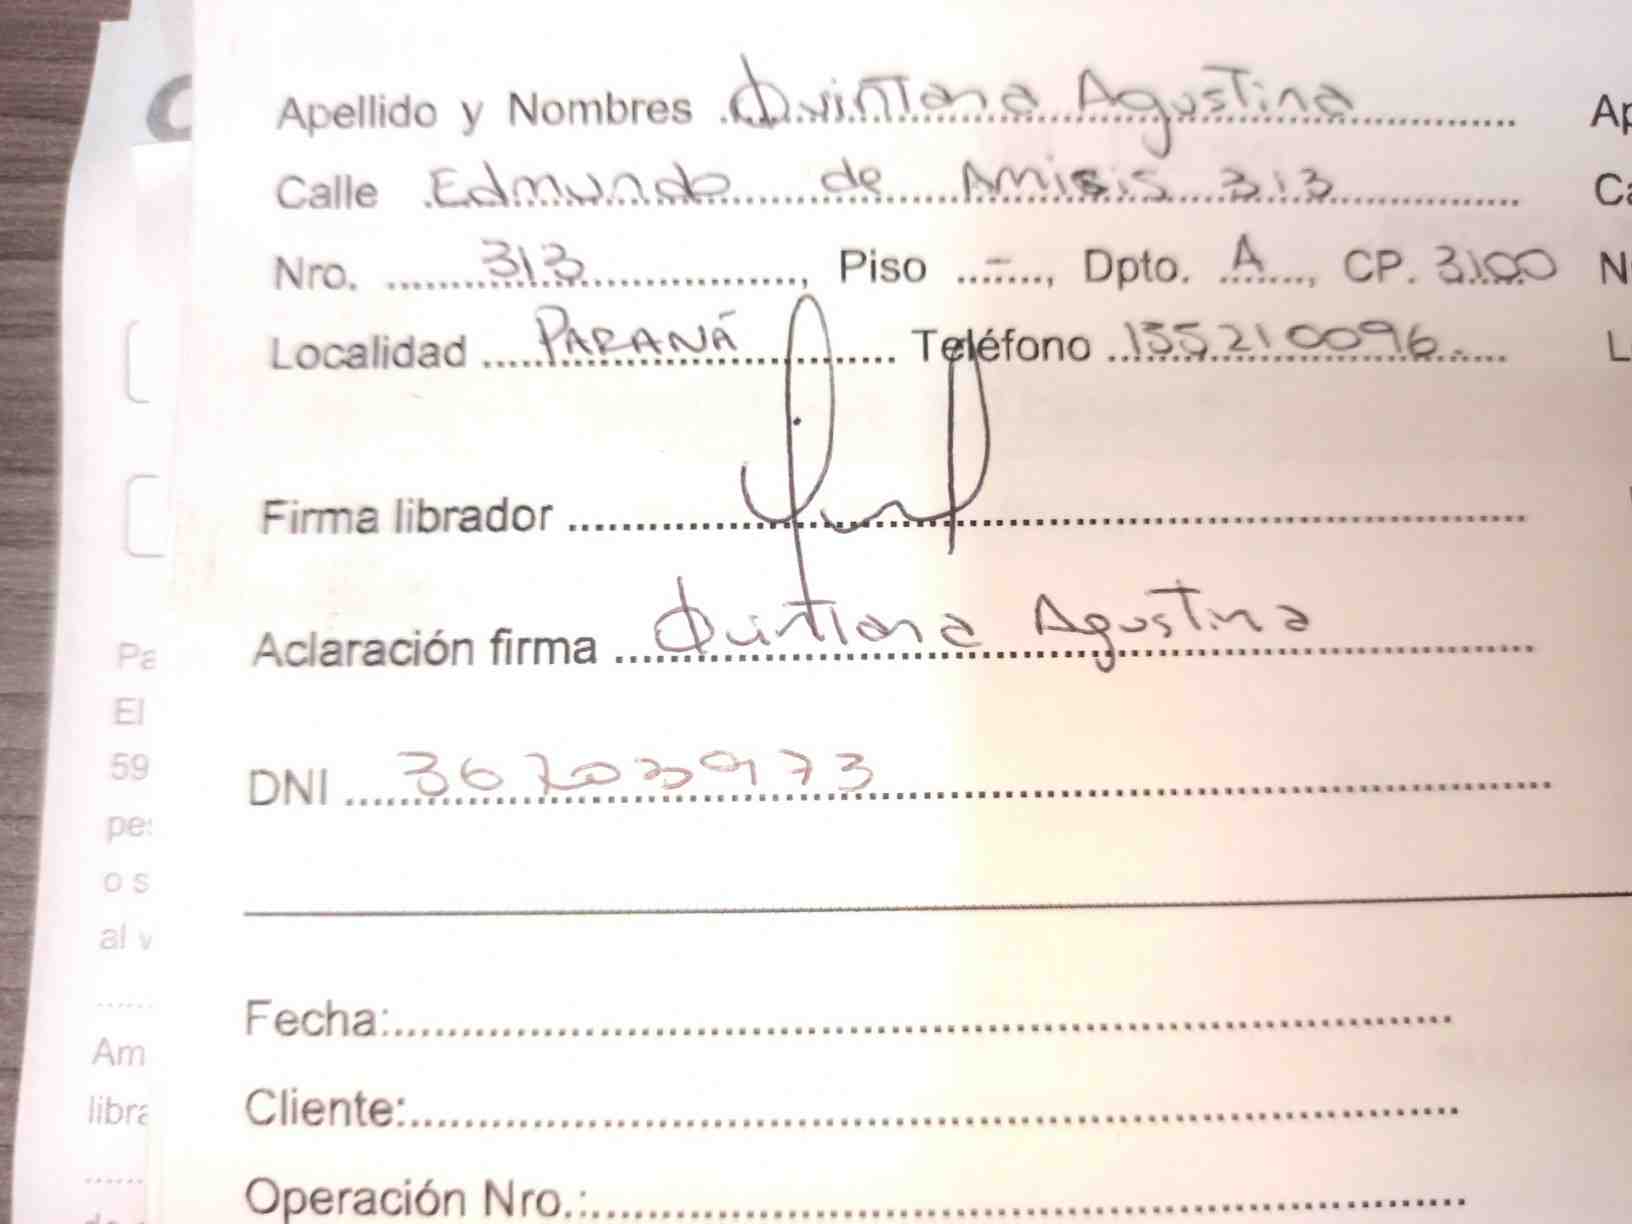 Apellido y Nombres Quintana Agustina
Calle Edmundo de Amisis 313
Nro. 313, Piso -, Dpto. A, CP. 3100
Localidad PARANÁ Teléfono 155210096.
Firma librador
Aclaración firma Quintana Agustina
DNI 36703973
Fecha:
Cliente:
Operación Nro.:
Pa
El
59
pes
o s
al v
Am
libra